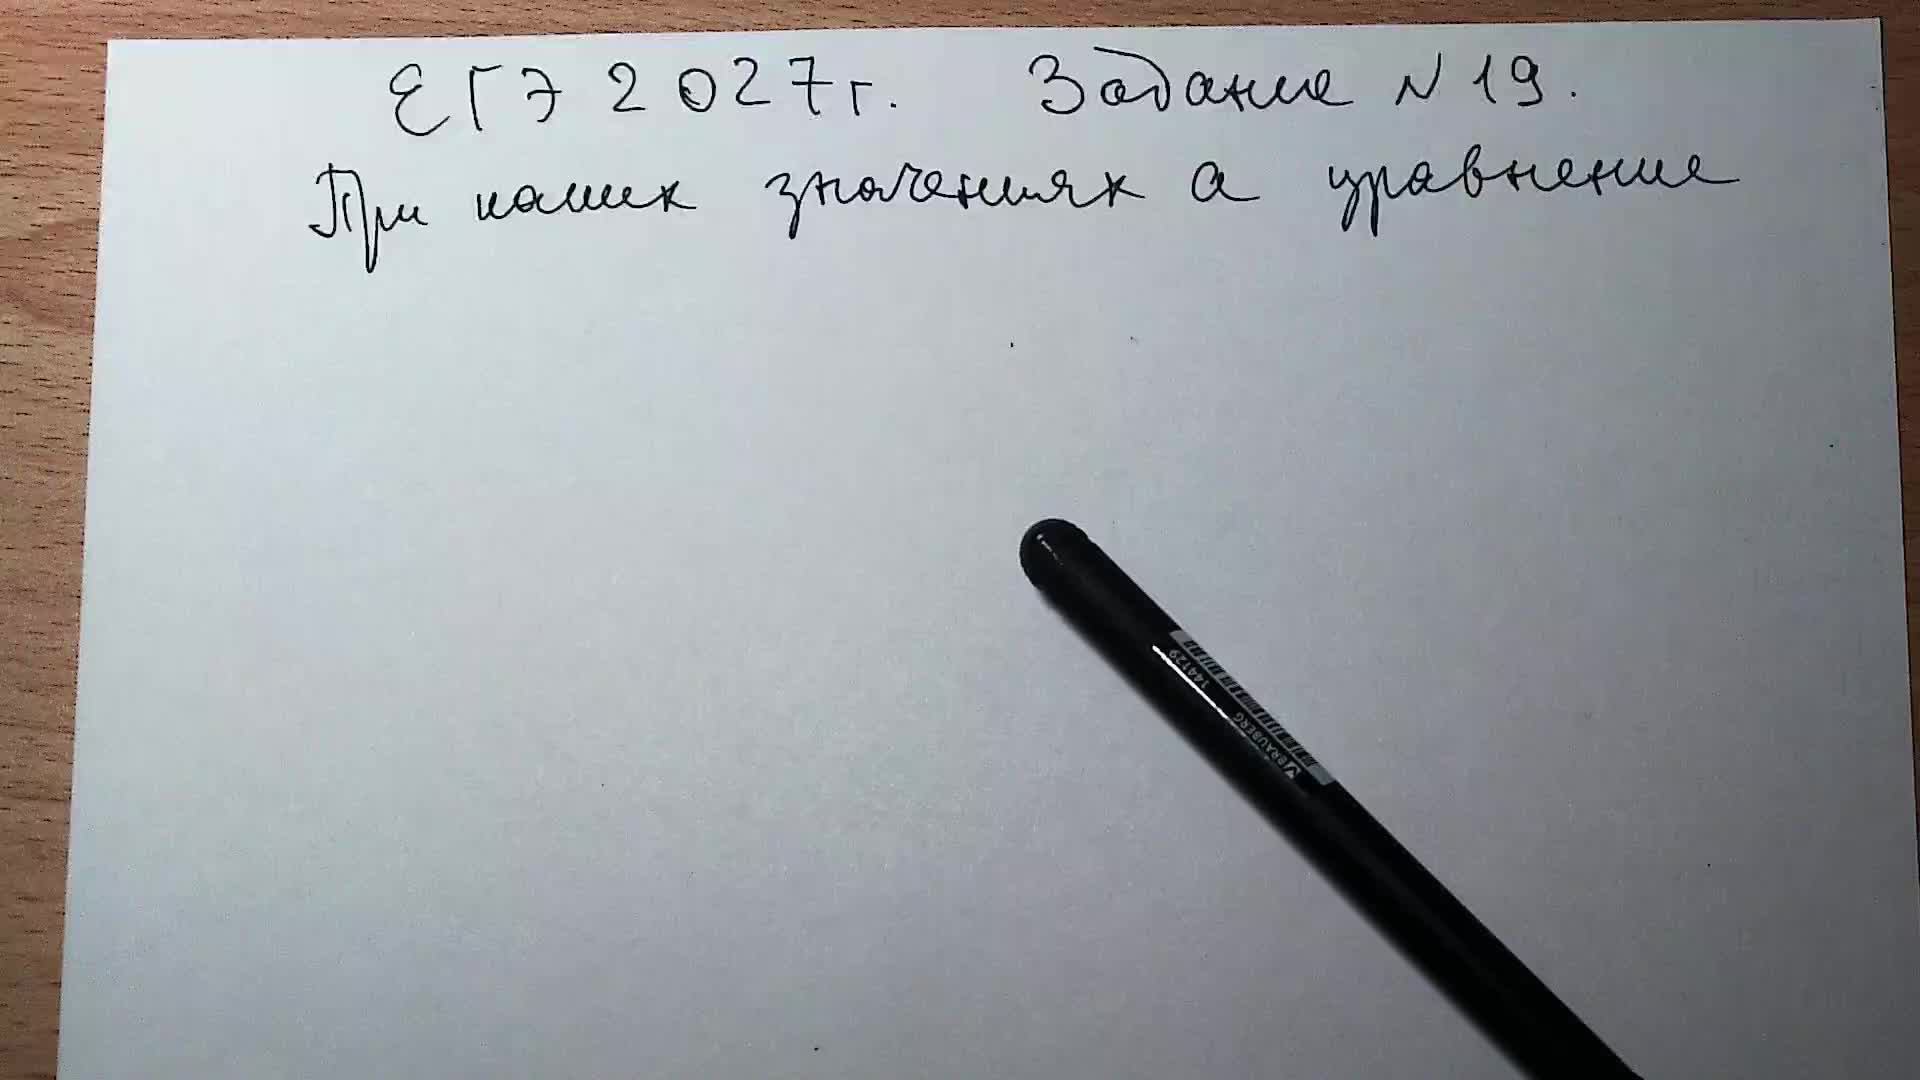 ЕГЭ 2027г. Задание №19.
При каких значениях а уравнение
144129
BRAUBERG